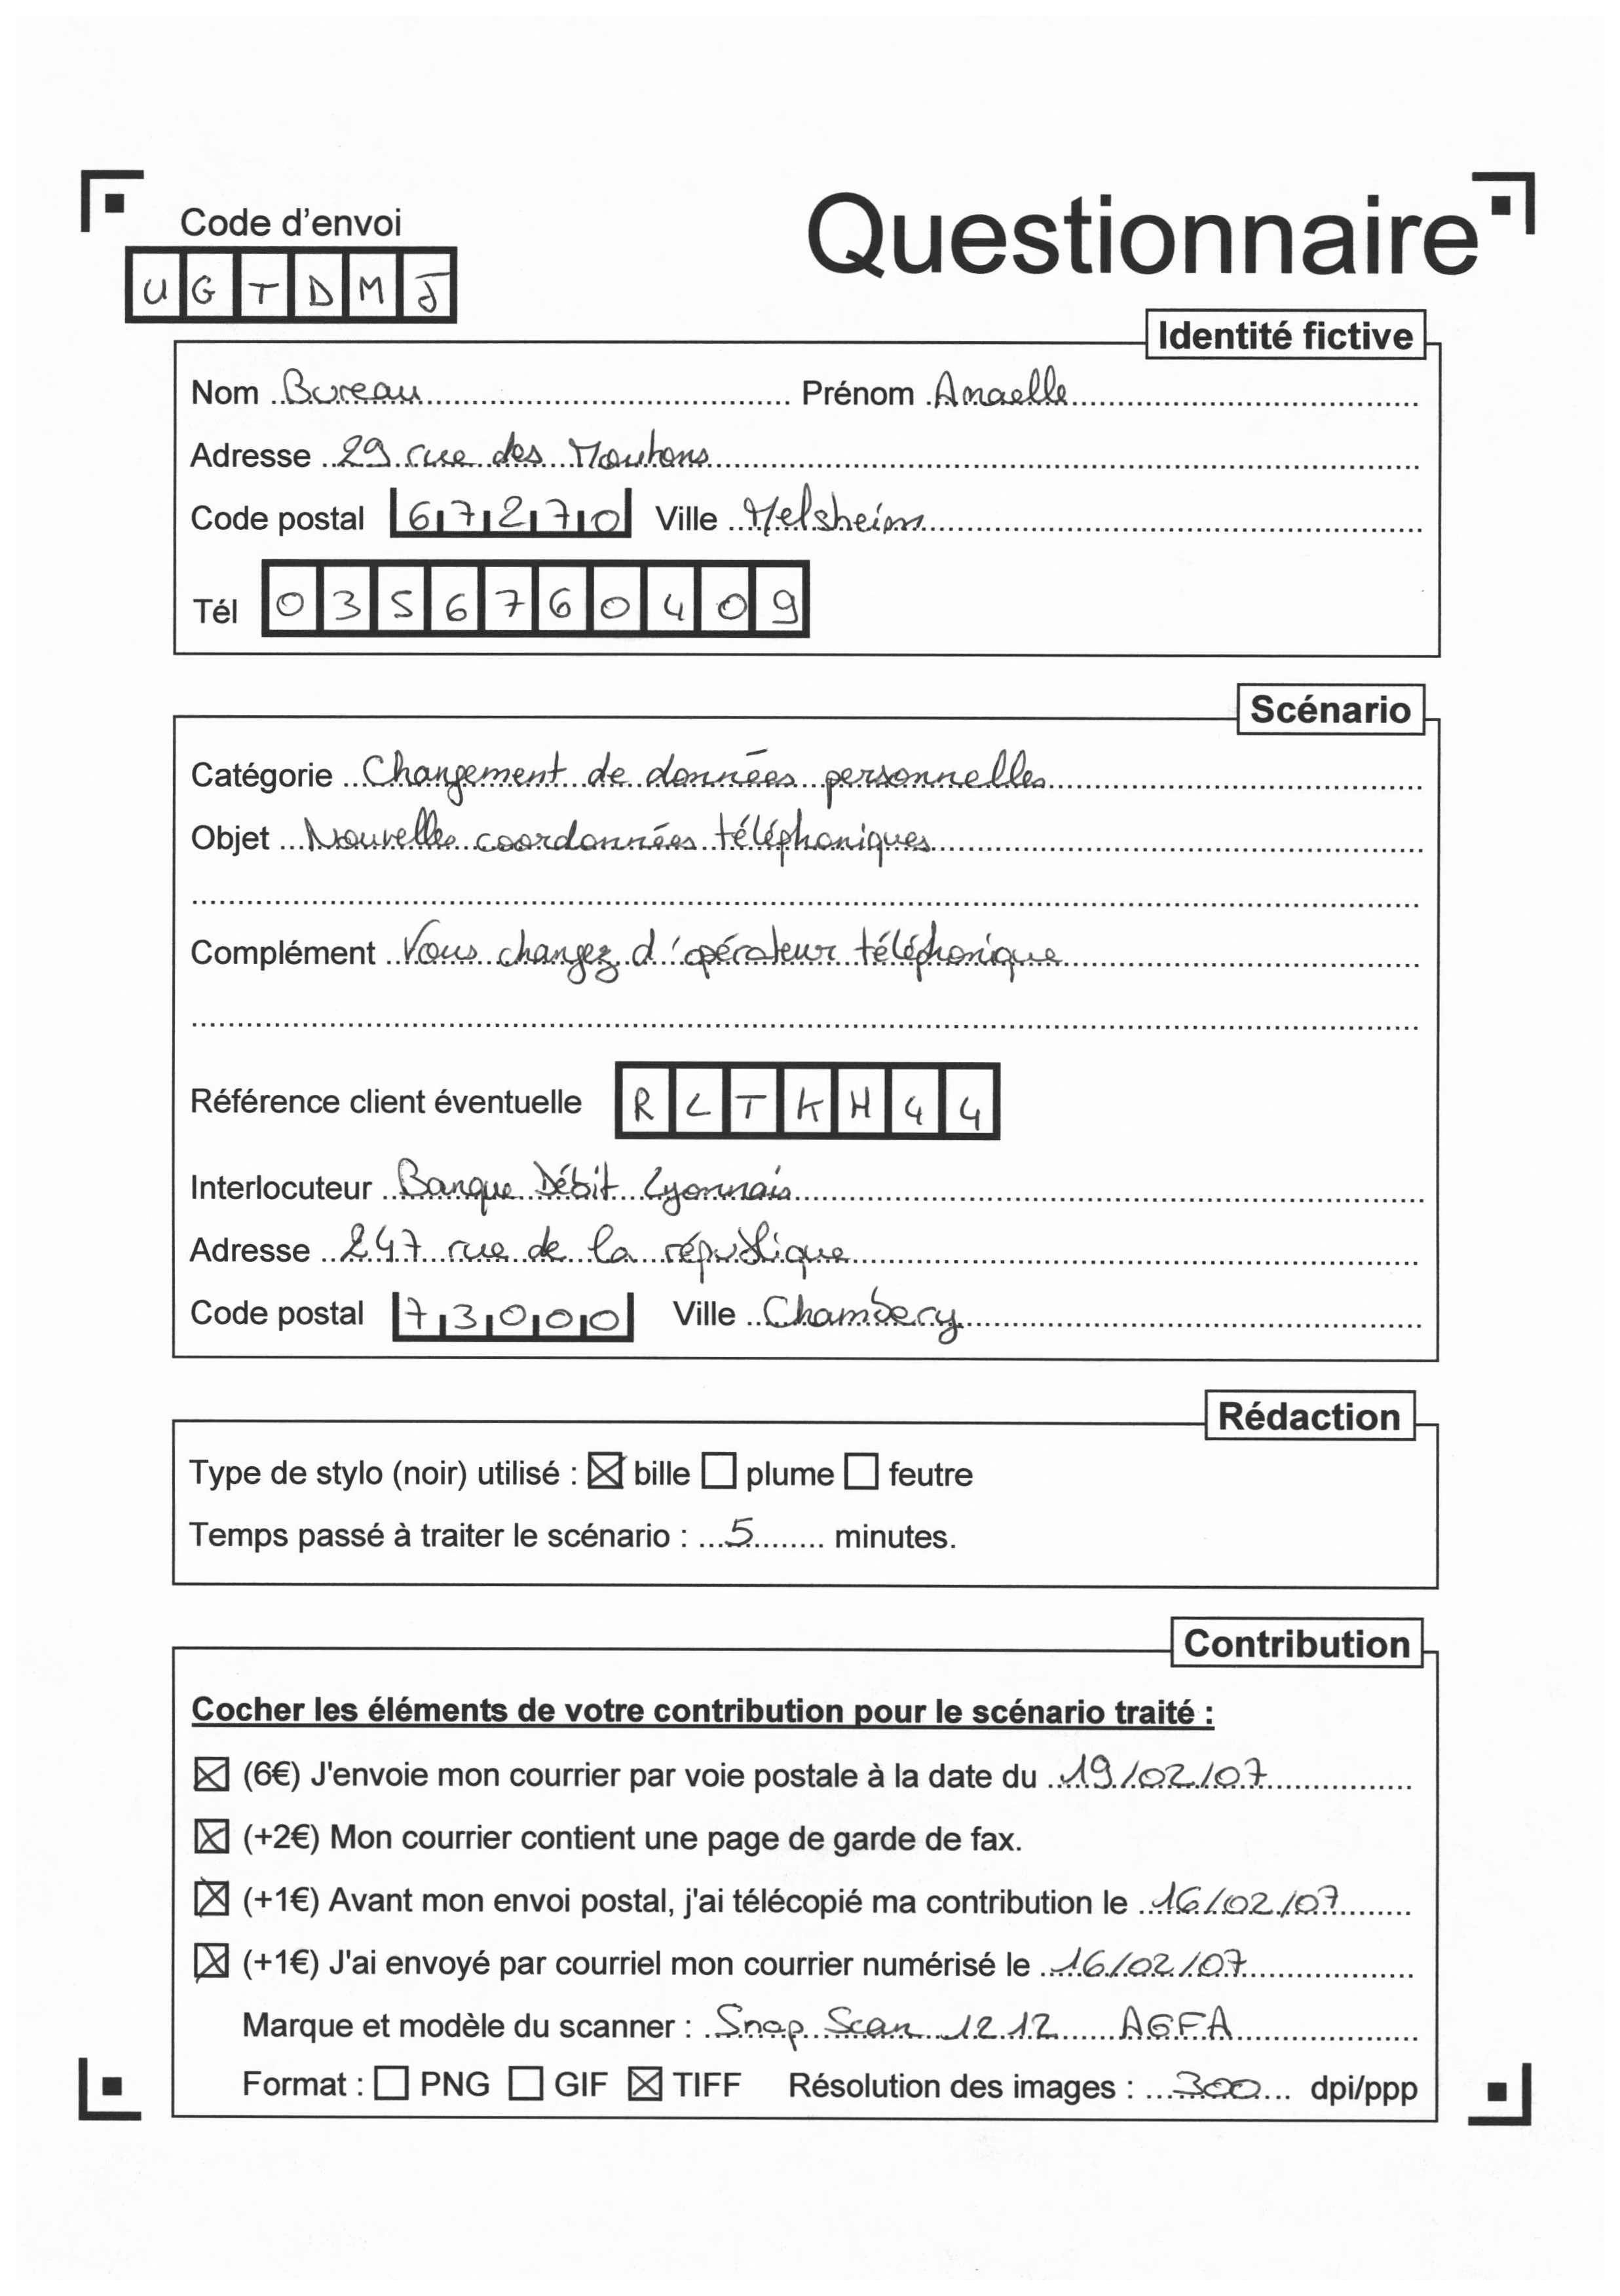 Code d'envoi
Questionnaire
UGTDMJ
Identité fictive
Nom Bureau Prénom Anaelle
Adresse 29 rue des Moutons
Code postal 67270 Ville Melsheim
Tél 0356760409
Scénario
Catégorie Changement de données personnelles
Objet Nouvelles coordonnées téléphoniques
Complément Vous changez d'opérateur téléphonique
Référence client éventuelle RLTKH44
Interlocuteur Banque Débit Lyonnais
Adresse 247 rue de la république
Code postal 73000 Ville Chambery
Rédaction
Type de stylo (noir) utilisé : ☒ bille ☐ plume ☐ feutre
Temps passé à traiter le scénario : 5 minutes.
Contribution
Cocher les éléments de votre contribution pour le scénario traité :
☒ (6€) J'envoie mon courrier par voie postale à la date du 19/02/07
☒ (+2€) Mon courrier contient une page de garde de fax.
☒ (+1€) Avant mon envoi postal, j'ai télécopié ma contribution le 16/02/07
☒ (+1€) J'ai envoyé par courriel mon courrier numérisé le 16/02/07
Marque et modèle du scanner : Snap Scan 1212 AGFA
Format : ☐ PNG ☐ GIF ☒ TIFF Résolution des images : 300 dpi/ppp